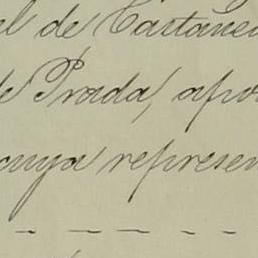 el de Castañed
de Prada, apo
cuya represen